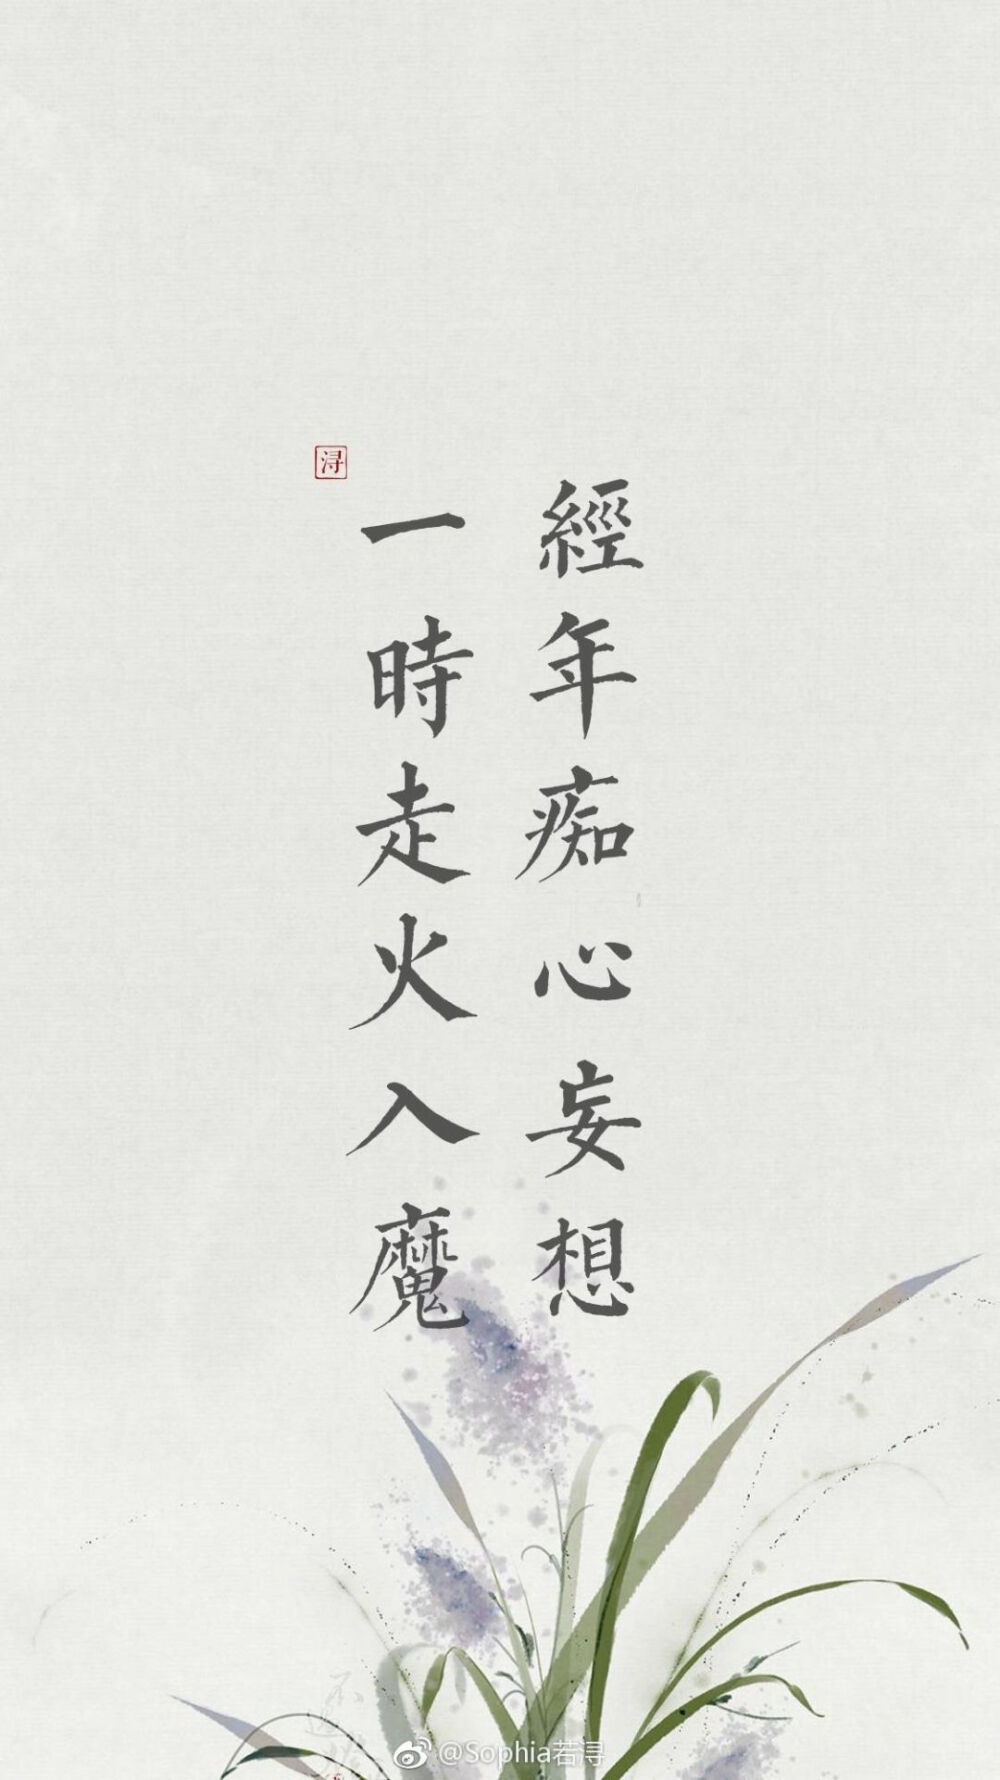 經年痴心妄想
一時走火入魔
浔
@Sophia若浔